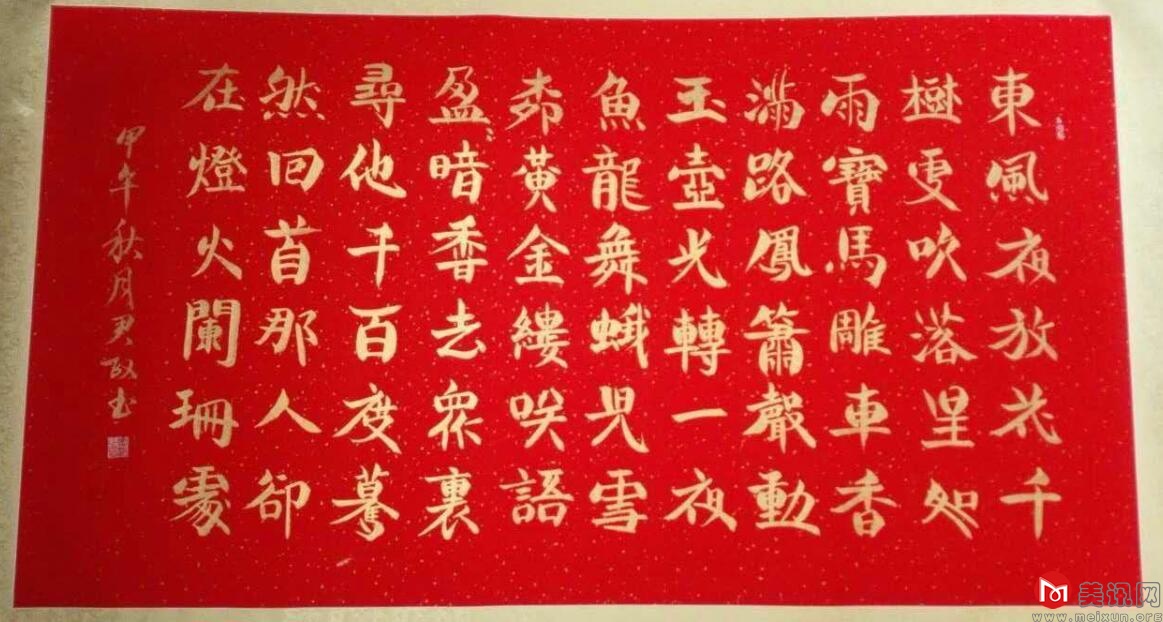 東風夜放花千
樹更吹落星如
雨寶馬雕車香
滿路鳳簫聲動
玉壺光轉一夜
魚龍舞蛾兒雪
柳黃金縷咲語
盈〻暗香去眾裏
尋他千百度驀
然回首那人卻
在燈火闌珊處
甲午秋月尹政书
美讯网
www.meixun.org